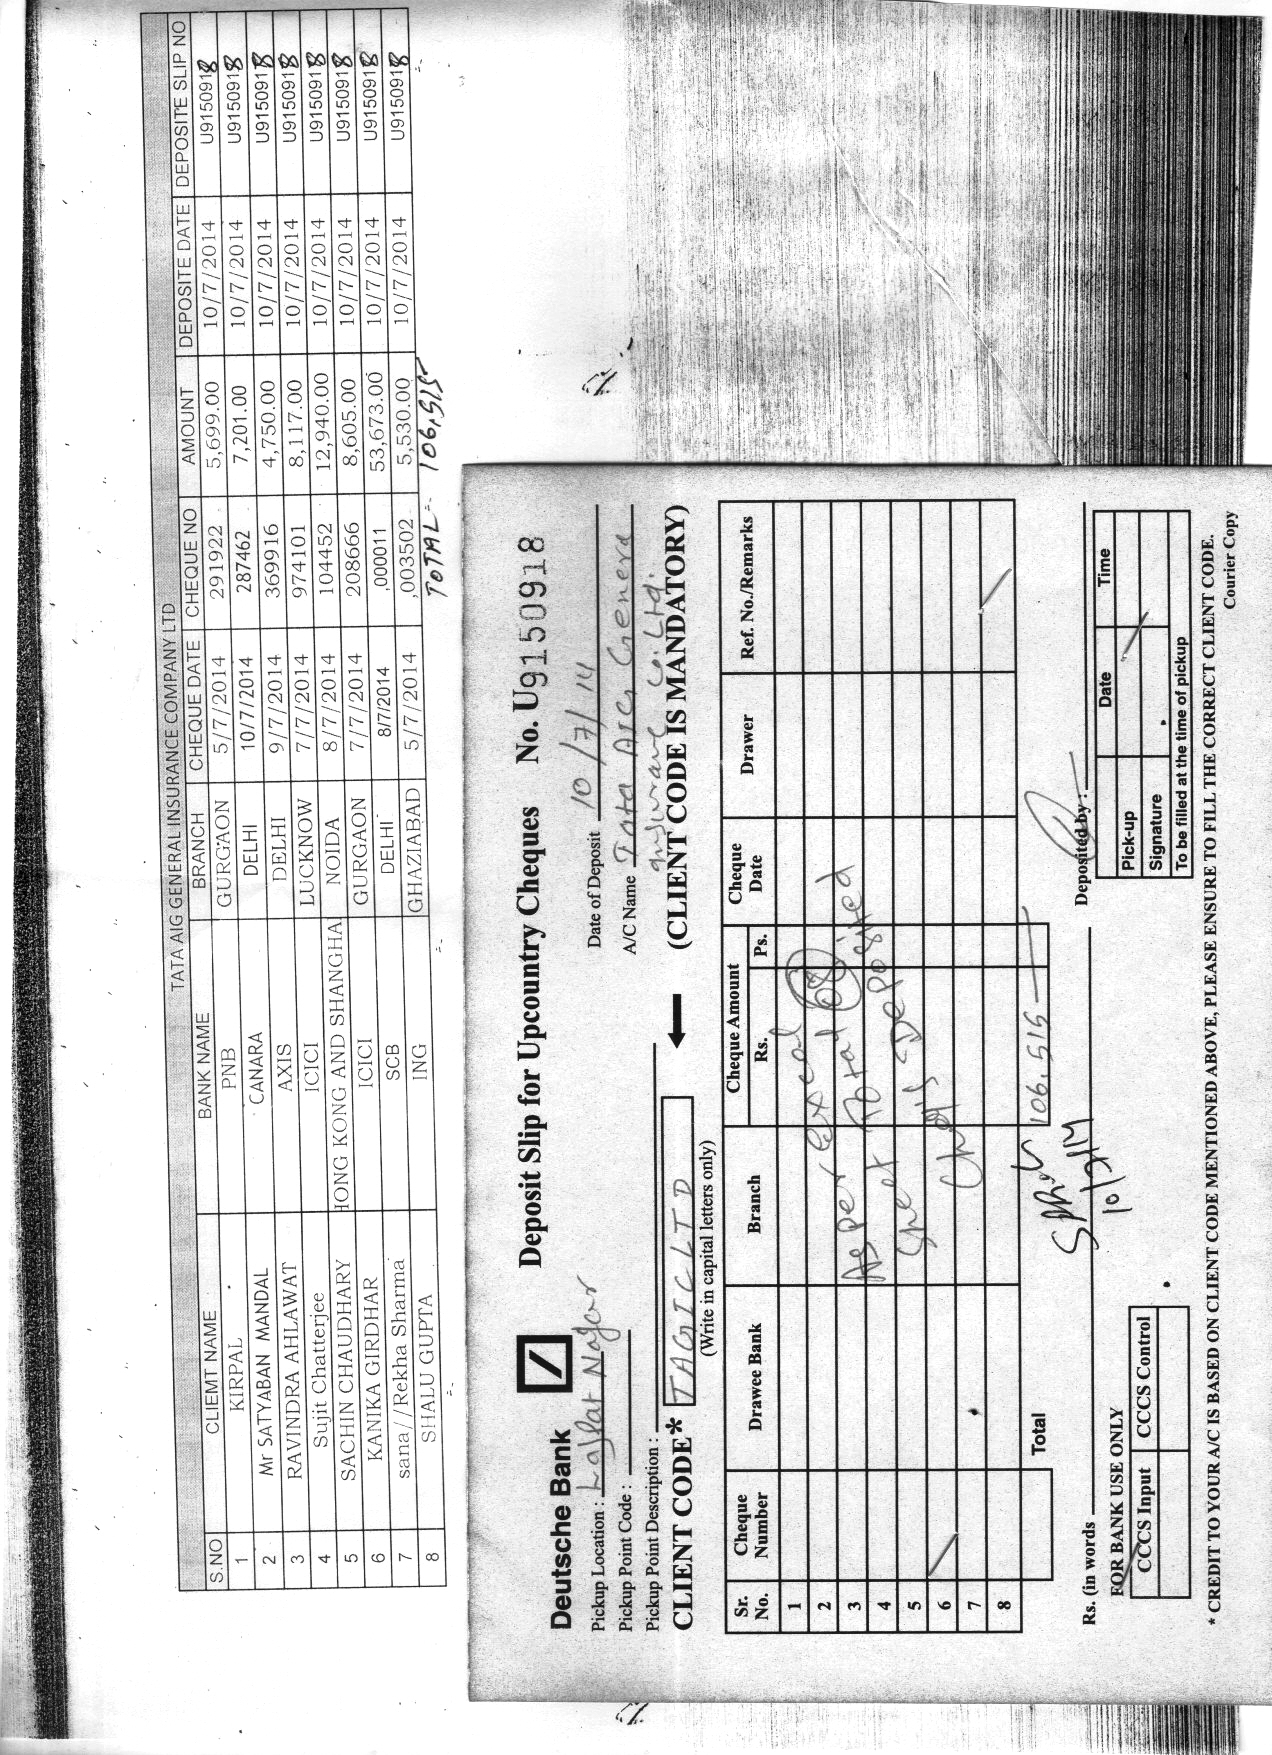 TATA AIG GENERAL INSURANCE COMPANY LTD
S.NO CLIEMT NAME BANK NAME BRANCH CHEQUE DATE CHEQUE NO AMOUNT DEPOSITE DATE DEPOSITE SLIP NO
1 KIRPAL PNB GURGAON 5/7/2014 291922 5,699.00 10/7/2014 U9150918
2 Mr SATYABAN MANDAL CANARA DELHI 10/7/2014 287462 7,201.00 10/7/2014 U9150918
3 RAVINDRA AHLAWAT AXIS DELHI 9/7/2014 369916 4,750.00 10/7/2014 U9150918
4 Sujit Chatterjee ICICI LUCKNOW 7/7/2014 974101 8,117.00 10/7/2014 U9150918
5 SACHIN CHAUDHARY HONG KONG AND SHANGHAI NOIDA 8/7/2014 104452 12,940.00 10/7/2014 U9150918
6 KANIKA GIRDHAR ICICI GURGAON 7/7/2014 208666 8,605.00 10/7/2014 U9150918
7 sana//Rekha Sharma SCB DELHI 8/7/2014 ,000011 53,673.00 10/7/2014 U9150918
8 SHALU GUPTA ING GHAZIABAD 5/7/2014 ,003502 5,530.00 10/7/2014 U9150918
TOTAL - 106,515
Deutsche Bank Deposit Slip for Upcountry Cheques No. U9150918
Pickup Location : Lajpat Nagar Date of Deposit 10/7/14
Pickup Point Code : A/C Name Tata AIG General
Pickup Point Description : insurance Co. Ltd.
CLIENT CODE* TAGIC LTD (CLIENT CODE IS MANDATORY)
(Write in capital letters only)
Sr. No. Cheque Number Drawee Bank Branch Cheque Amount Rs. Ps. Cheque Date Drawer Ref. No./Remarks
1
2
3
4
5
6
7
8
As per excel
Sheet Total 08
Chq's Deposited
Total 106,515
Rs. (in words
10/7/14
Deposited by :
FOR BANK USE ONLY
CCCS Input CCCS Control
Date Time
Pick-up
Signature
To be filled at the time of pickup
* CREDIT TO YOUR A/C IS BASED ON CLIENT CODE MENTIONED ABOVE, PLEASE ENSURE TO FILL THE CORRECT CLIENT CODE.
Courier Copy